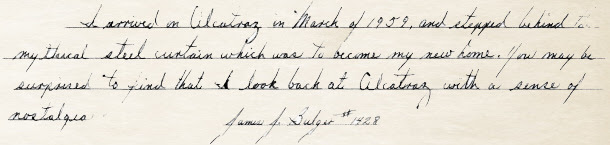 I arrived on Alcatraz in March of 1959, and stepped behind
mythical steel curtain which was to become my new home. You may be
surprised to find that I look back at Alcatraz with a sense of
nostalgia.
James J. Bulger #1428